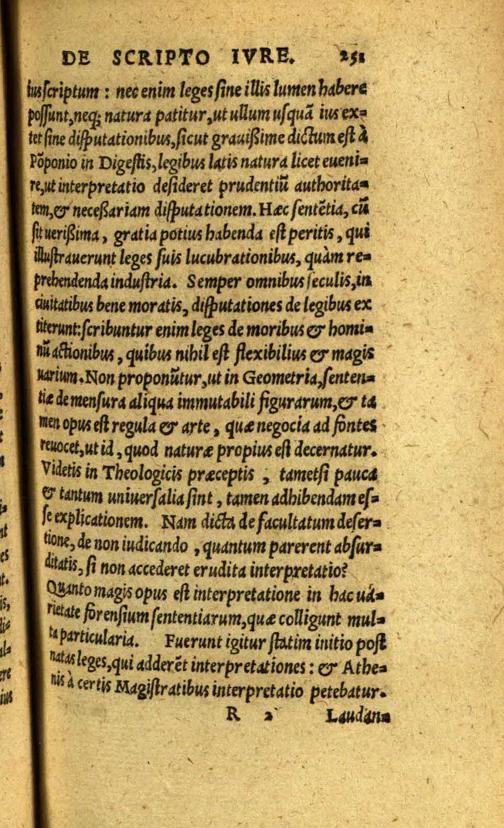 DE SCRIPTO IVRE. 251
bus scriptum : nec enim leges sine illis lumen habere
possunt, neq; natura patitur, ut ullum usquã ius ex-
tet sine disputationibus, sicut grauißime dictum est à
Põponio in Digestis, legibus latis natura licet eueni-
re, ut interpretatio desideret prudentiũ authorita-
tem, & neceßariam disputationem. Hæc sentẽtia, cũ
sit uerißima, gratia potius habenda est peritis, qui
illustrauerunt leges suis lucubrationibus, quàm re-
prehendenda industria. Semper omnibus seculis, in
ciuitatibus bene moratis, disputationes de legibus ex
titerunt: scribuntur enim leges de moribus & homi-
nũ actionibus, quibus nihil est flexibilius & magis
uarium. Non proponũtur, ut in Geometria, senten-
tiæ de mensura aliqua immutabili figurarum, & ta
men opus est regula & arte, quæ negocia ad fontes
reuocet, ut id, quod naturæ propius est decernatur.
Videtis in Theologicis præceptis, tametsi pauca
& tantum uniuersalia sint, tamen adhibendam es-
se explicationem. Nam dicta de facultatum deser-
tione, de non iudicando, quantum parerent absur-
ditatis, si non accederet erudita interpretatio?
Quanto magis opus est interpretatione in hac ua-
rietate forensium sententiarum, quæ colligunt mul-
ta particularia. Fuerunt igitur statim initio post
natas leges, qui adderẽt interpretationes : & Athe-
nis à certis Magistratibus interpretatio petebatur.
R 2 Laudan-